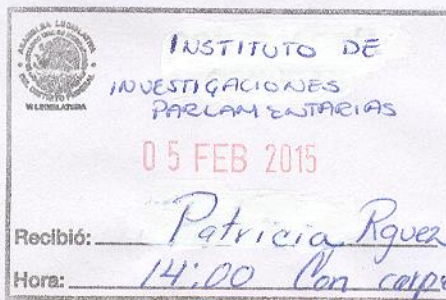 ASAMBLEA LEGISLATIVA
DEL DISTRITO FEDERAL
VI LEGISLATURA
INSTITUTO DE
INVESTIGACIONES
PARLAMENTARIAS
05 FEB 2015
Recibió: Patricia Rguez
Hora: 14:00 Con